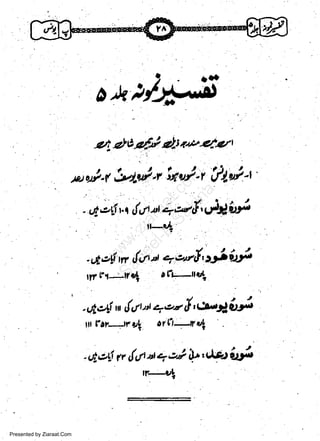 تفسیر نمونہ جلد ۵
۲۸
یونس
تفسیر نمونہ جلد ۵
اس جلد میں سورتیں شامل ہیں
۱- سُورہ یونس ۲- سُورہ ہود ۳- سُورہ یوسف ۴- سُورہ رعد
سُورۃ یونس : مکی سورت ہے اور اس کی ۱۰۹ آیات ہیں۔
پارہ ۱۱
سُورۃ ھود : مکی سورت ہے اور اس کی ۱۲۳ آیات ہیں۔
پارہ ۱۱ ـ ۱ تا ۵ پارہ ۱۲ ـ ۶ تا ۱۲۳
سُورۃ یوسف : مکی سورت ہے اور اس کی ۱۱۱ آیات ہیں۔
پارہ ۱۲ ـ ۱ تا ۵۲ پارہ ۱۳ ـ ۵۳ تا ۱۱۱
سُورۃ رعد : مدنی سورت ہے اور اس کی ۴۳ آیات ہیں۔
پارہ ۱۳
Presented by Ziaraat.Com